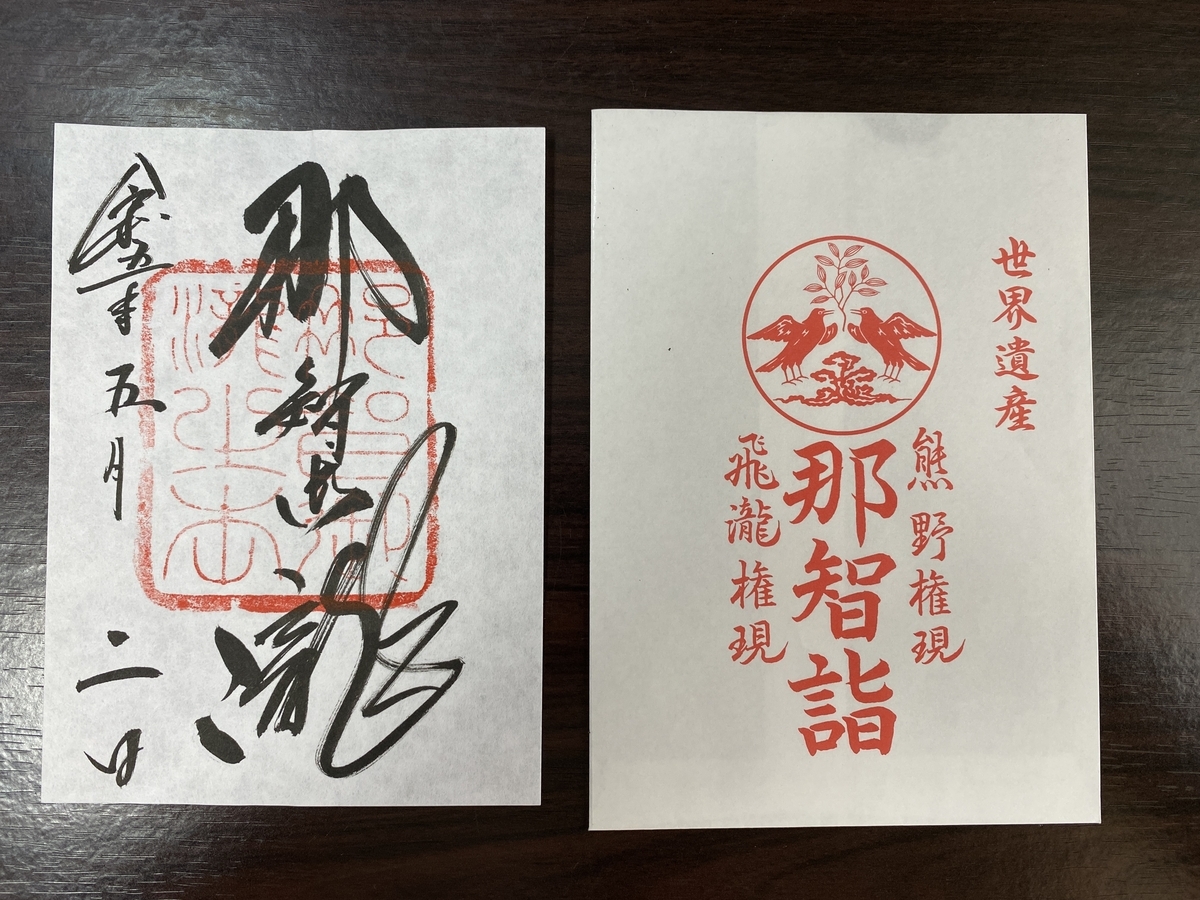 那智御瀧
令和五年五月二日
世界遺産
熊野権現
那智詣
飛瀧権現